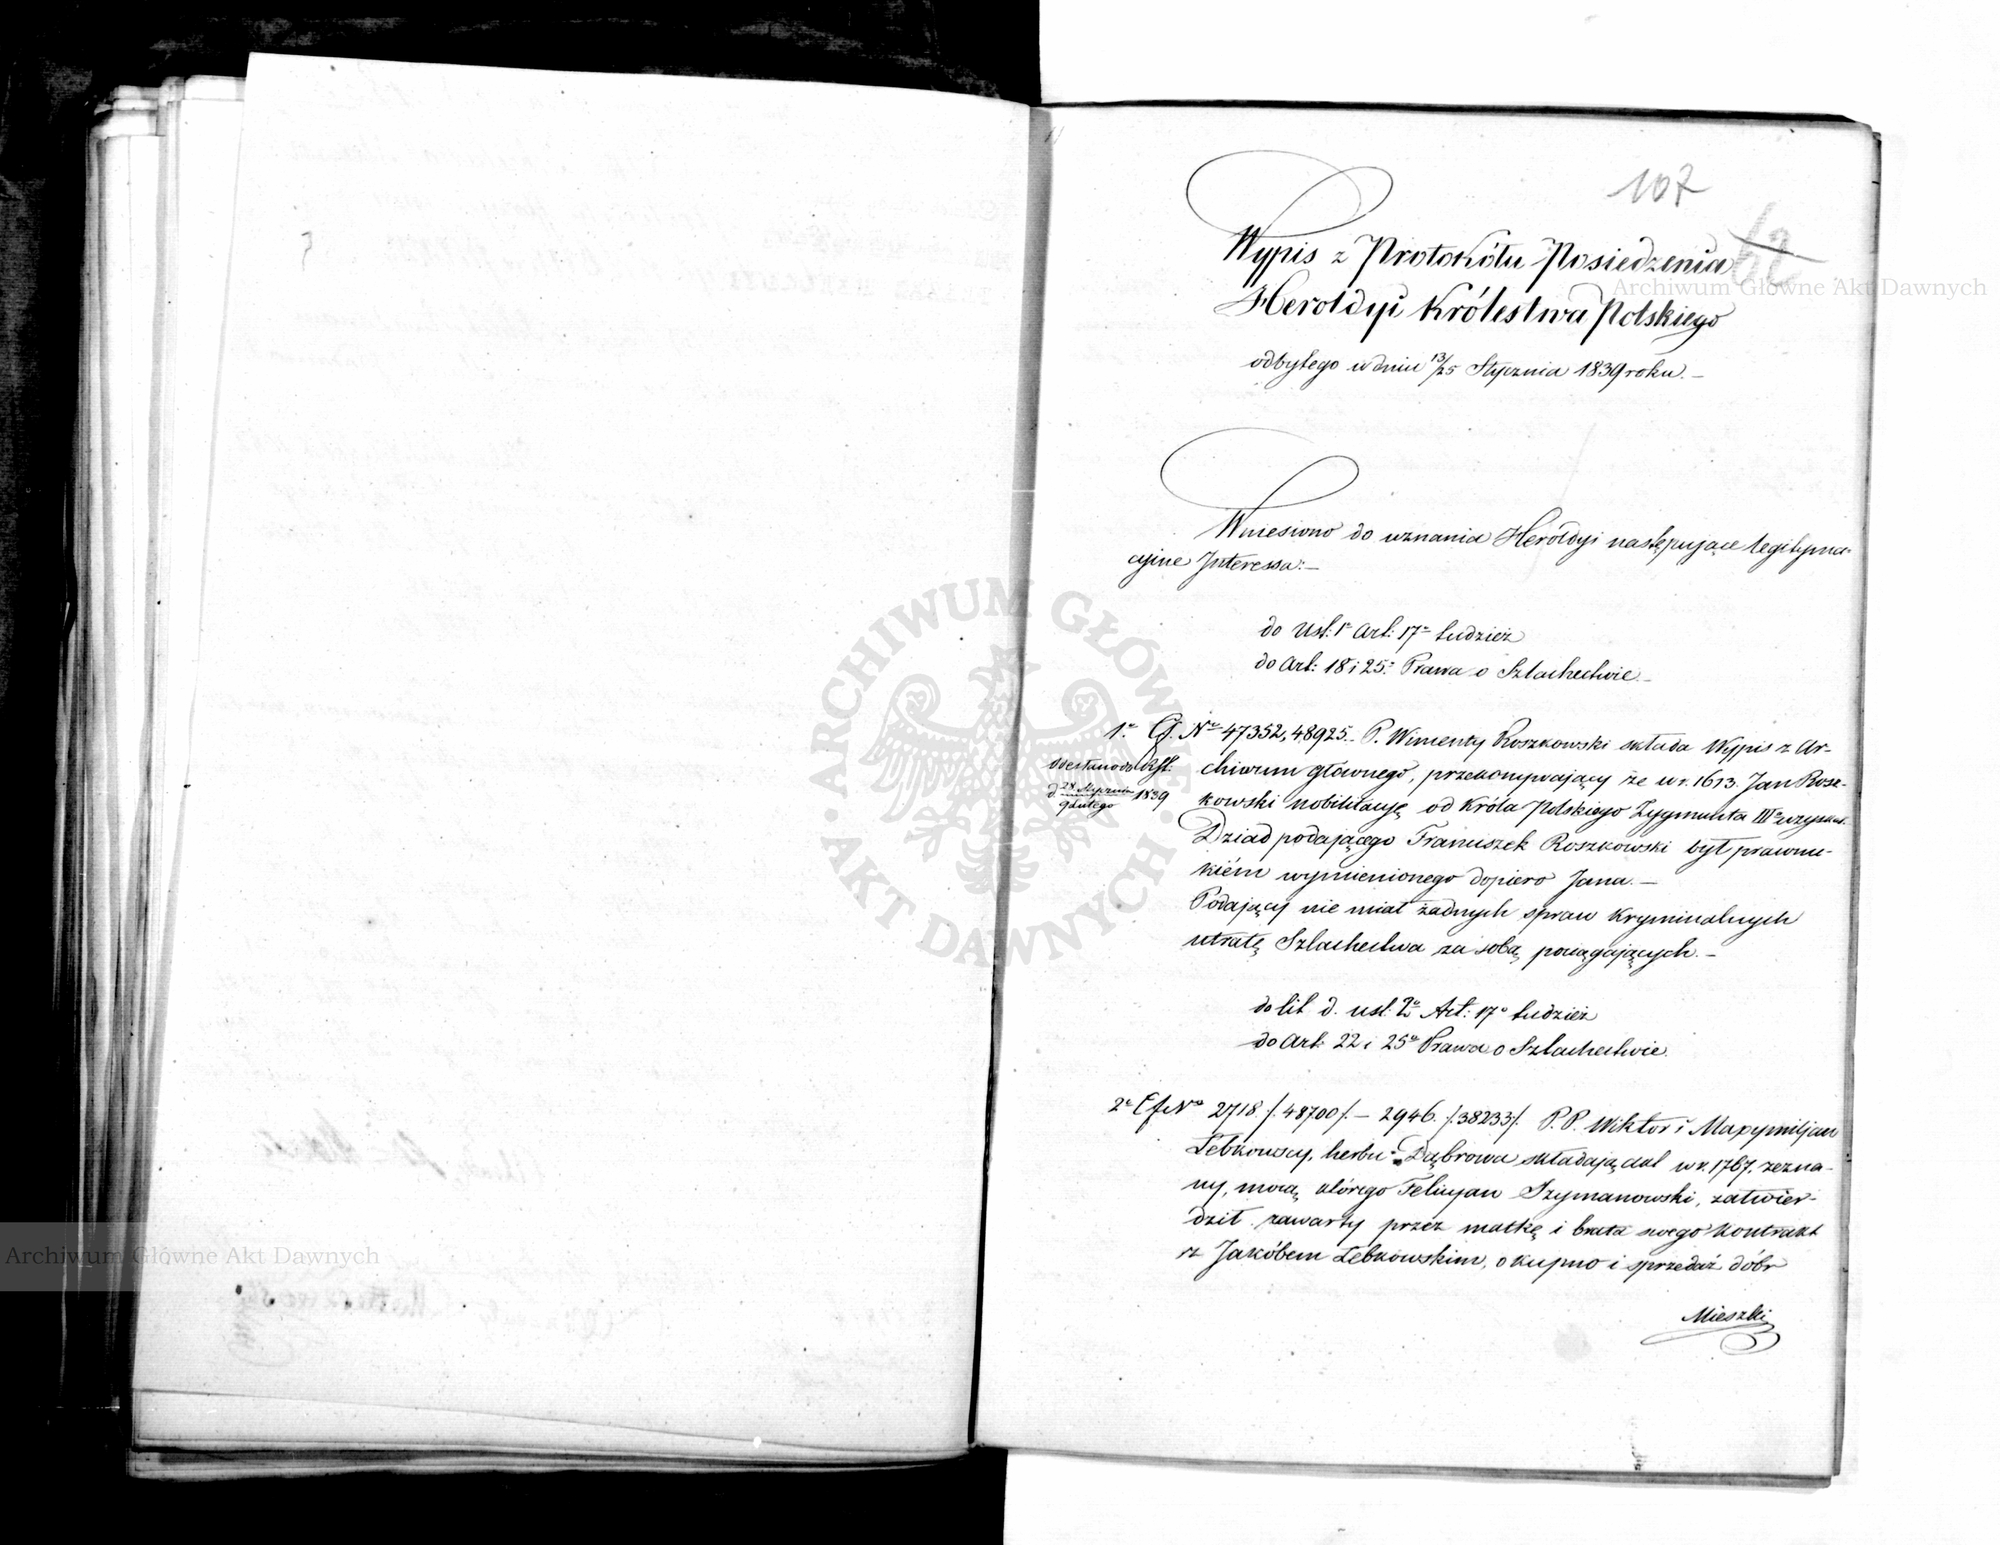 107
62
Wypis z Protokółu Posiedzenia
Heroldyi Królestwa Polskiego
odbytego w dniu 13/25 Stycznia 1839 roku. –
Wniesiono do uznania Heroldyi następujące legityma-
cyjne Interessa: –
do Ust: 1º Art: 17º tudzież
do Art: 18 i 25º Prawa o Szlachectwie. –
1º Cf. Nº 47352, 48925. P. Wincenty Roszkowski składa Wypis z Ar-
chiwum głównego, przekonywający że w r. 1613. Jan Rosz-
kowski nobilitację od Króla Polskiego Zygmunta III
Dziad podającego Franciszek Roszkowski był prawnu-
kiem wymienionego dopiero Jana. –
Podający nie miał żadnych spraw kryminalnych
utratę Szlachectwa za sobą pociągających. –
d 28 Stycznia 1839
9 Lutego
do lit d. ust: 2º Art: 17º tudzież
do Art: 22 i 25º Prawa o Szlachectwie.
2º Cf Nº 2718 /.48700/. – 2946. /.38233/. P.P. Wiktor i Maxymiljan
Łebkowscy, herbu Dąbrowa składają akt w r. 1767. zezna-
ny, mocą którego Felicyan Szymanowski, zatwier-
dził zawarty przez matkę i brata swego Kontrakt
z Jakóbem Łebkowskim, o kupno i sprzedaż dóbr
Mieszki
Archiwum Główne Akt Dawnych
Archiwum Główne Akt Dawnych
ARCHIWUM GŁÓWNE AKT DAWNYCH